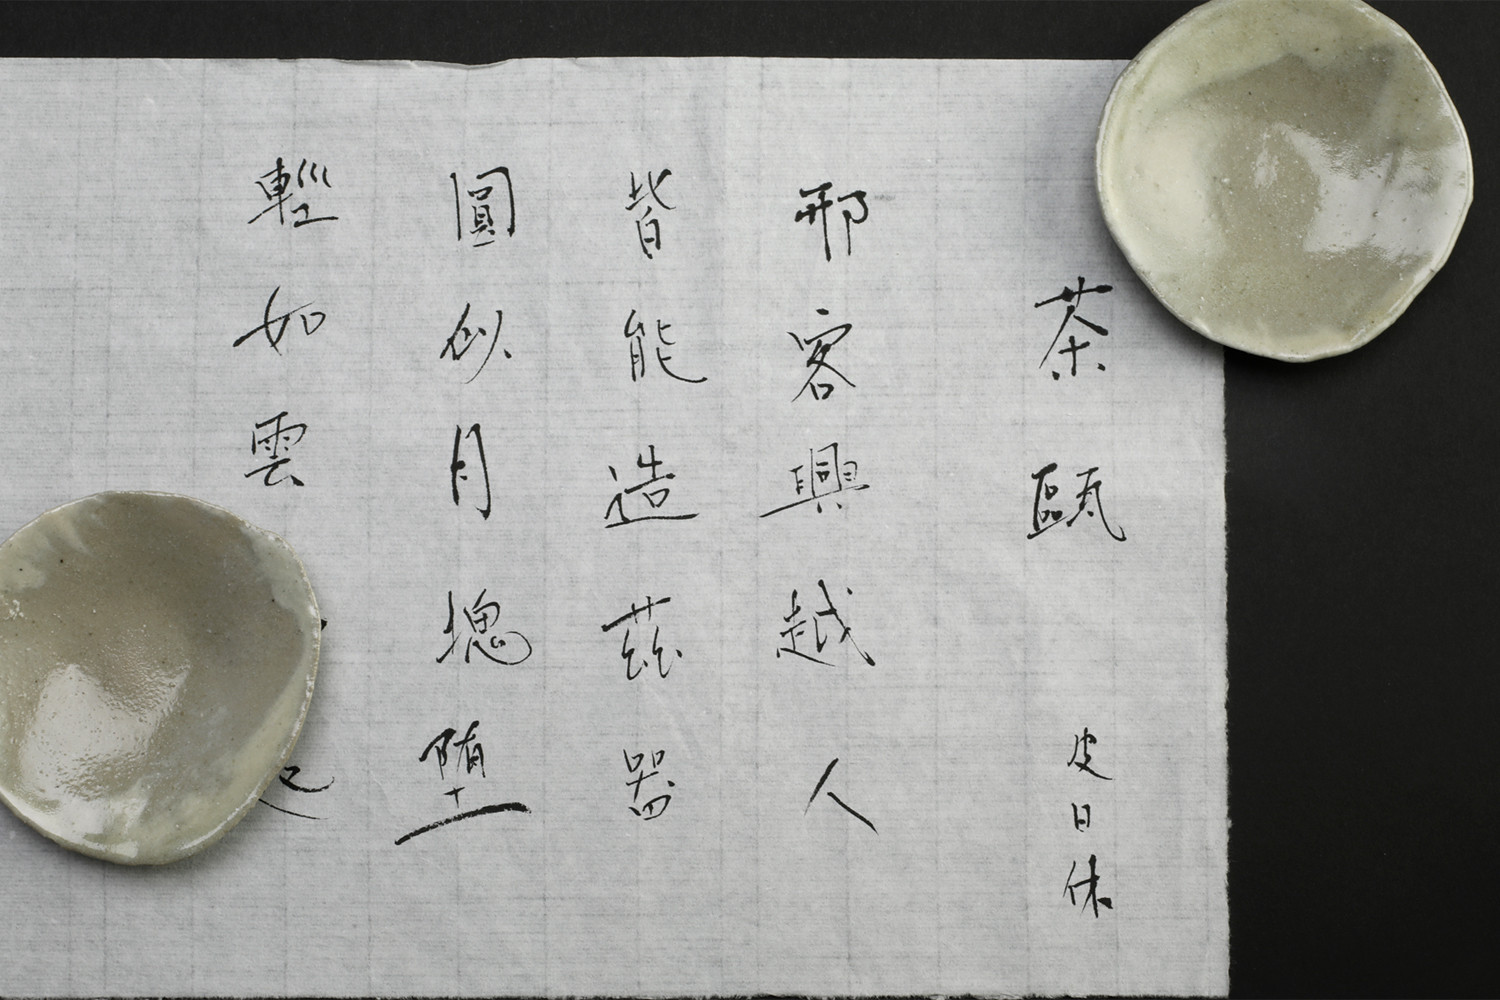 茶甌
皮日休
邢客興越人
皆能造茲器
圓似月魂堕
輕如雲